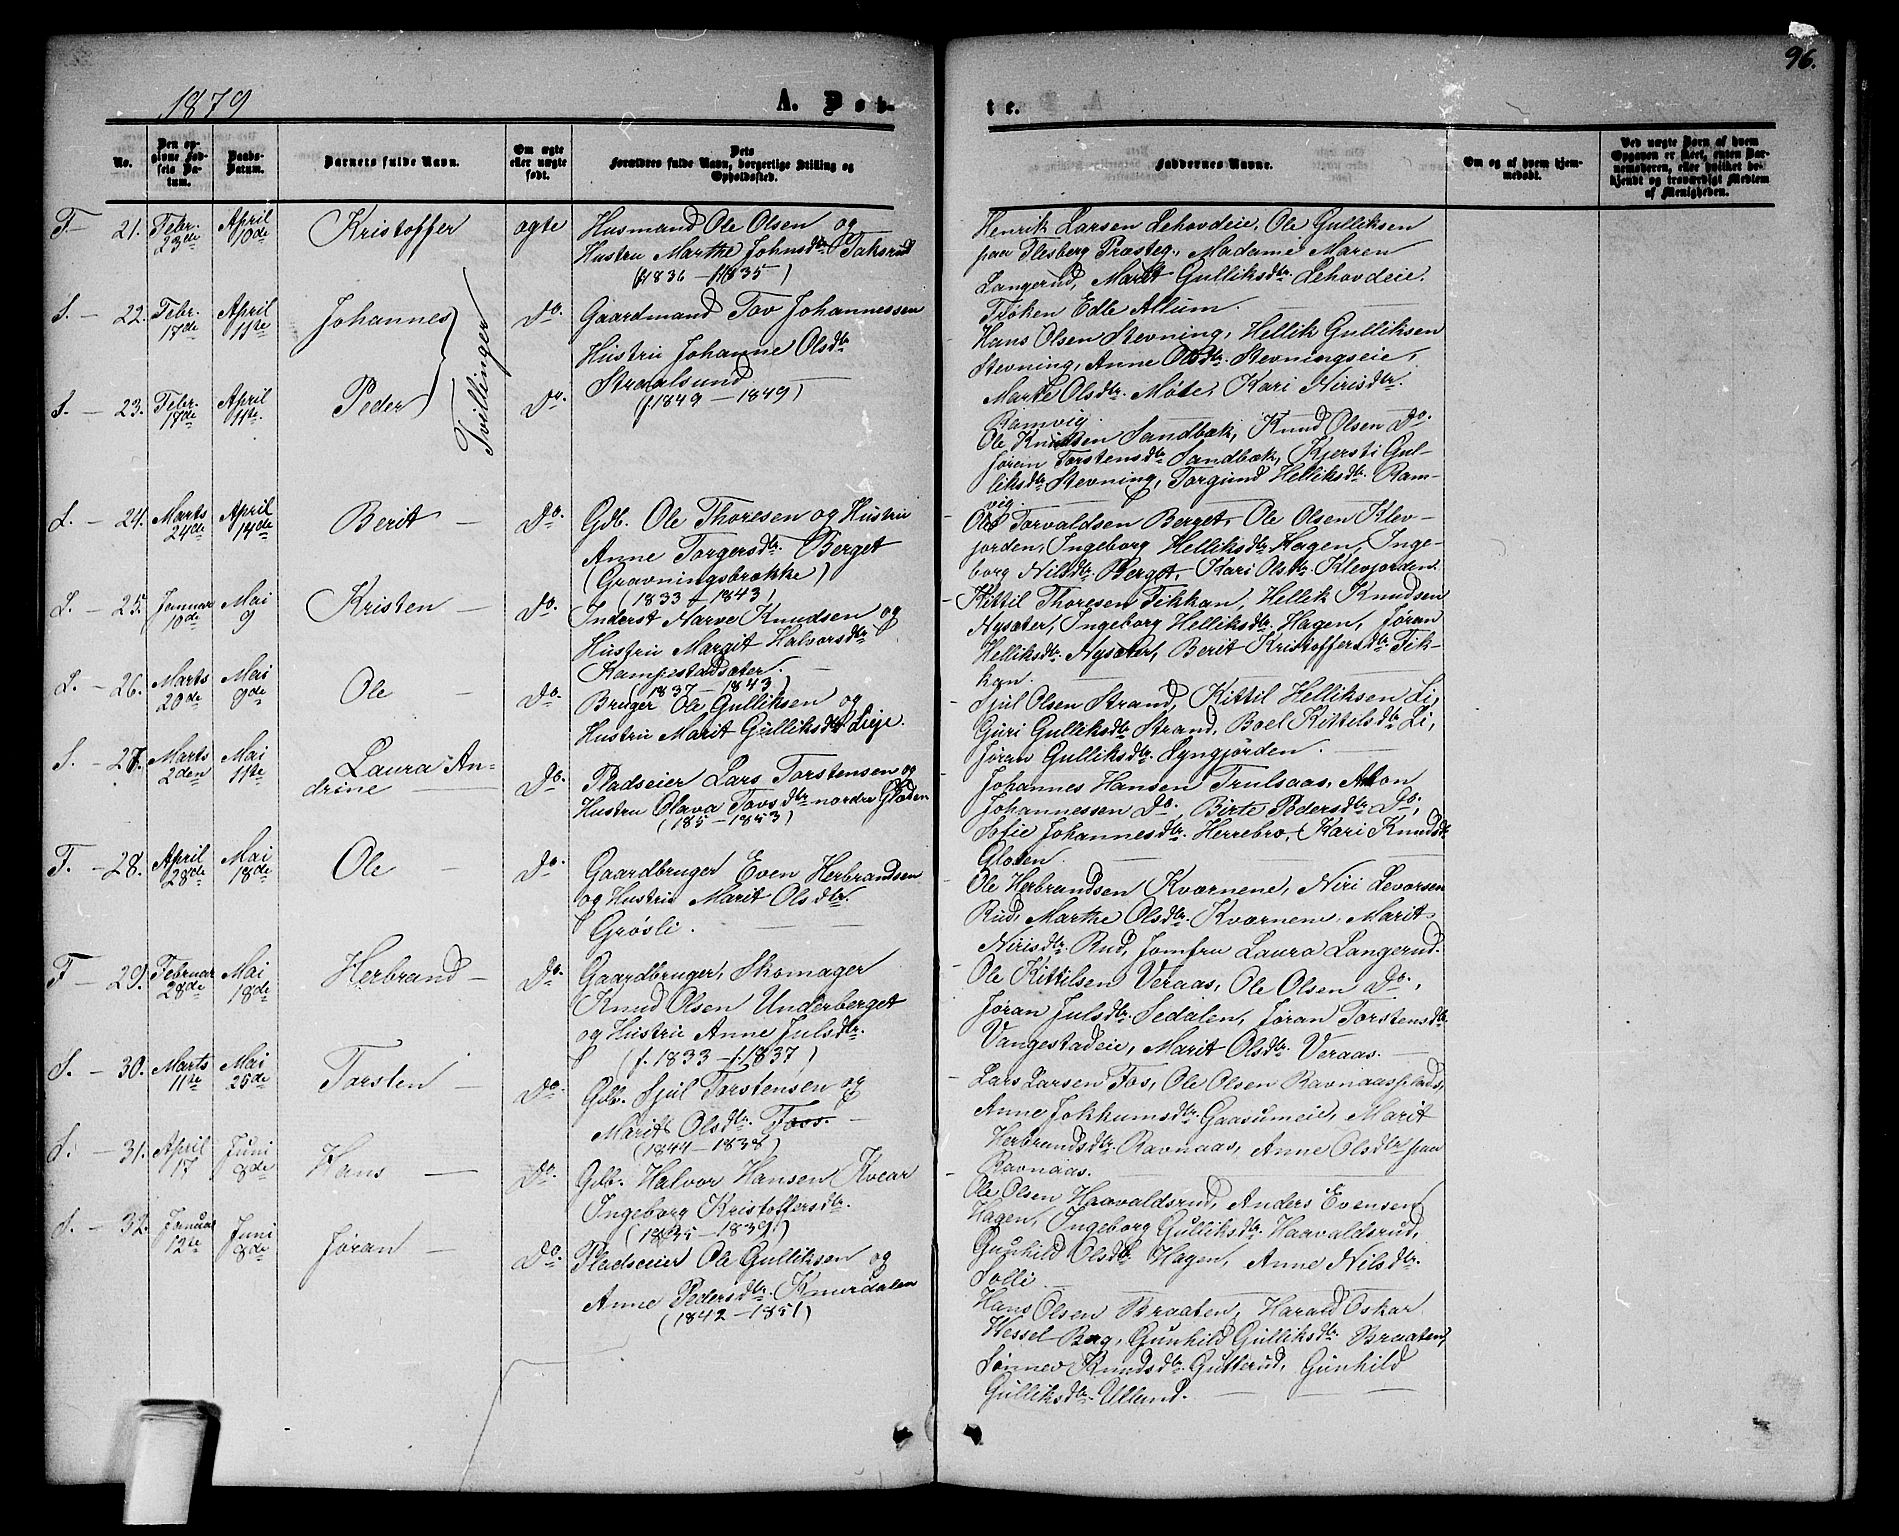 96.
1879
A. Døb-
te.
No.
Den op-
givne Fød-
sels Da-
tum.
Daabs-
Datum.
Barnets fulde Navn.
Om ægte
eller uægte
født.
Dets
Forældres fulde Navn, borgerlige Stilling og
Opholdssted.
Faddernes Navne.
Om og af hvem hjem-
medøbt.
Ved uægte Børn af hvem
Opgaven er skeet, enten Bar-
nemoderen, eller hvilket be-
kjendt og troværdigt Medlem
af Menigheden.
F - 21. Febr. 23de April 10de Kristoffer ægte
Husmand Ole Olsen og
Hustru Marthe Johnsdtr Taksrud
(f. 1836 - f. 1835)
Henrik Larsen Lehovdeie, Ole Gulliksen
paa Flesberg Præsteg., Madame Maren
Langerud, Marit Gulliksdtr. Lehovdeie.
Frøken Edle Allum.
S. - 22. Febr. 17de April 11te Johannes Do.
Tvillinger
Gaardmand Tov Johannessen
Hustru Johanne Olsdtr
Straalsund
(f. 1849 - 1849)
Hans Olsen Stevning, Hellik Gulliksen
Stevning, Anne Olsdtr. Stevningseie,
Marte Olsdtr. Møte, Kari Nirisdtr.
Ramvig.
S. - 23. Febr. 17de April 11te. Peder Do.
Ole Knudsen Sandbæk, Knud Olsen Do.
Jøran Torstensdtr Sandbæk, Kjersti Gul-
liksdtr Stevning, Torgund Helliksdtr. Ram-
vig.
L. - 24. Marts 24de April 14de Berit - Do.
Gdb. Ole Thoresen og Hustru
Anne Torgersdtr. Berget
(Gravningsbrække)
(1833 - 1843)
Ole Torvaldsen Berget, Ole Olsen Klev-
jorden, Ingeborg Helliksdtr. Hagen, Inge-
borg Nilsdtr. Berget, Kari Olsdtr Klevjorden.
L. - 25. Januar 10de Mai 9 Kristen - Do.
Inderst Narve Knudsen og
Hustru Margit Halvorsdtr
Kampestadsæter.
(1837 - 1843)
Kittil Thoresen Fikkan, Hellik Knudsen
Nysæter, Ingeborg Helliksdtr. Hagen, Jøran
Helliksdtr. Nysæter, Berit Kristoffersdtr. Fik-
kan.
L. - 26. Marts 20de Mai 9de Ole - Do.
Bruger Ole Gulliksen og
Hustru Marit Gulliksdtr Lieje.
Sjul Olsen Strand, Kittil Helliksen Li,
Guri Gulliksdtr. Strand, Boel Kittilsdtr. Li,
Jøran Gulliksdtr. Lyngjorden.
S. - 27. Marts 2den Mai 11te Laura An-
drine Do.
Pladseier Lars Torstensen og
Hustru Olava Tovsdtr. nordre Gloden
(185 - 1853)
Johannes Hansen Trulsaas, Anton
Johannessen Do., Birte Pedersdtr Do.,
Sofie Johannesdtr. Herrebro, Kari Knudsdtr
Gloden.
F. - 28. April 28de Mai 18de Ole - Do.
Gaardbruger Even Herbrandsen
og Hustru Marit Olsdtr.
Grøsli.
Ole Herbrandsen Kværnene, Niri Levorsen
Rud, Marthe Olsdtr. Kværnene, Marit
Nirisdtr. Rud, Jomfru Laura Langerud.
F - 29. Februar 28de Mai 18de Herbrand - Do.
Gaardbruger, Skomager
Knud Olsen Underberget
og Hustru Anne Julsdtr.
(f. 1833 - f. 1837)
Ole Kittilsen Veraas, Ole Olsen Do.,
Jøran Julsdtr. Sedalen, Jøran Torstensdtr
Vangestadeie, Marit Olsdtr. Veraas.
S. - 30. Marts 11te Mai 25de Torsten - Do.
Gdb. Sjul Torstensen og
Marit Olsdtr. Foss.
(1844 - 1838)
Lars Larsen Fos, Ole Olsen Ravnaasplads,
Anne Jokkumsdtr. Gaasumeie, Marit
Herbrandsdtr. Ravnaas, Anne Olsdtr paa
Ravnaas.
S. - 31. April 17 Juni 8de Hans - Do.
Gdb. Halvor Hansen Kvear
Ingeborg Kristoffersdtr.
(1835 - 1839)
Ole Olsen Haavaldsrud, Anders Evensen
Hagen, Ingeborg Gulliksdtr. Haavaldsrud,
Gunhild Olsdtr Hagen, Anne Nilsdtr.
Solli.
S. - 32. Januar 12te Juni 8de Jøran - Do.
Pladseier Ole Gulliksen og
Anne Pedersdtr. Knurdalen
(1842 - 1851)
Hans Olsen Braaten, Harald Oskar
Wessel Berg, Gunhild Gulliksdtr. Braaten,
Sønnev Knudsdtr. Gutterud, Gunhild
Gulliksdtr. Ullund.